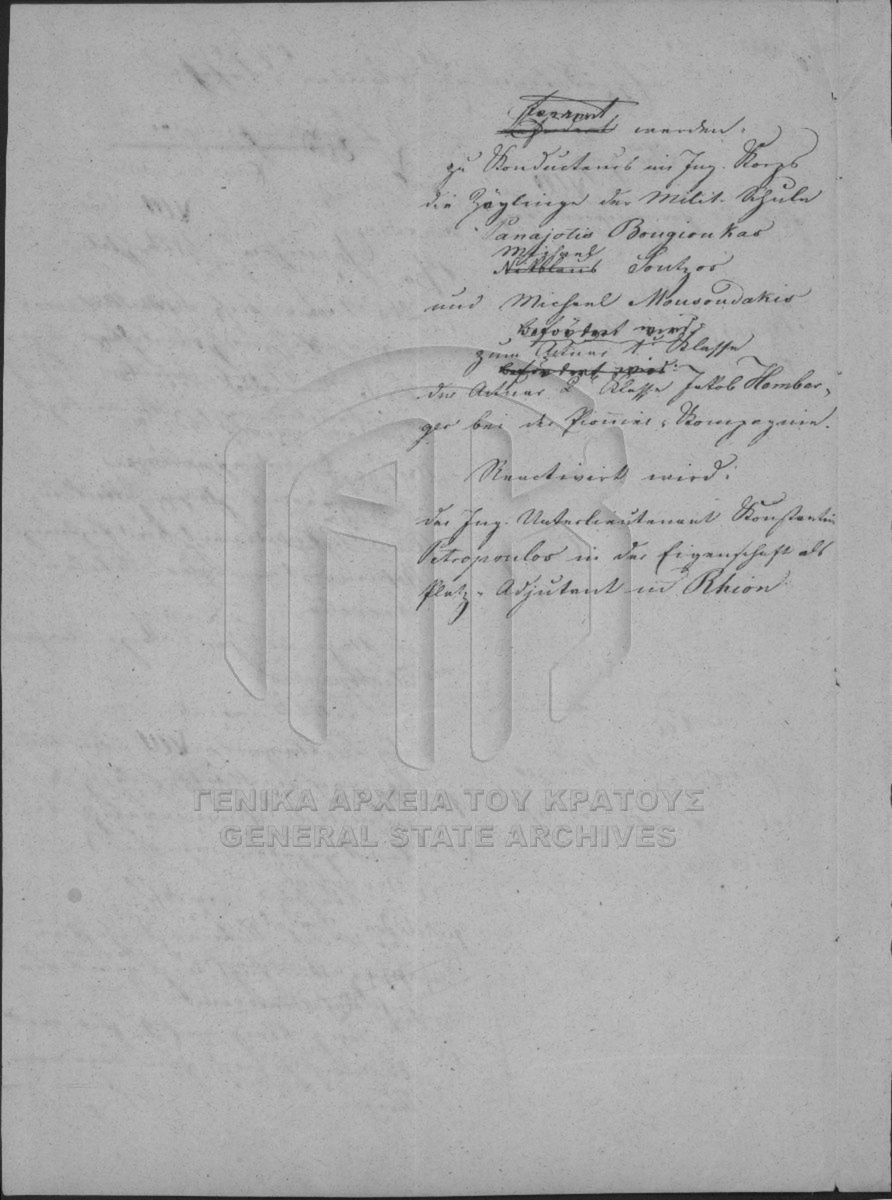 Ernannt werden:
zu Konducteurs im Ing. Korps
die Zöglinge der Milit. Schule
Panajotis Bougioukas
Michael
Nikolaus Soutzos
und Michael Mousoudakis
befördert wird
zum Actuar 1r Klasse
befördert wird:
der Actuar 2r Klasse Jakob Hambar-
ger bei der Pionnier-Kompagnie.
Reactivirt wird:
der Ing. Unterlieutenant Konstantin
Petropoulos in der Eigenschaft als
Platz-Adjutant in Rhion
ΓΕΝΙΚΑ ΑΡΧΕΙΑ ΤΟΥ ΚΡΑΤΟΥΣ
GENERAL STATE ARCHIVES